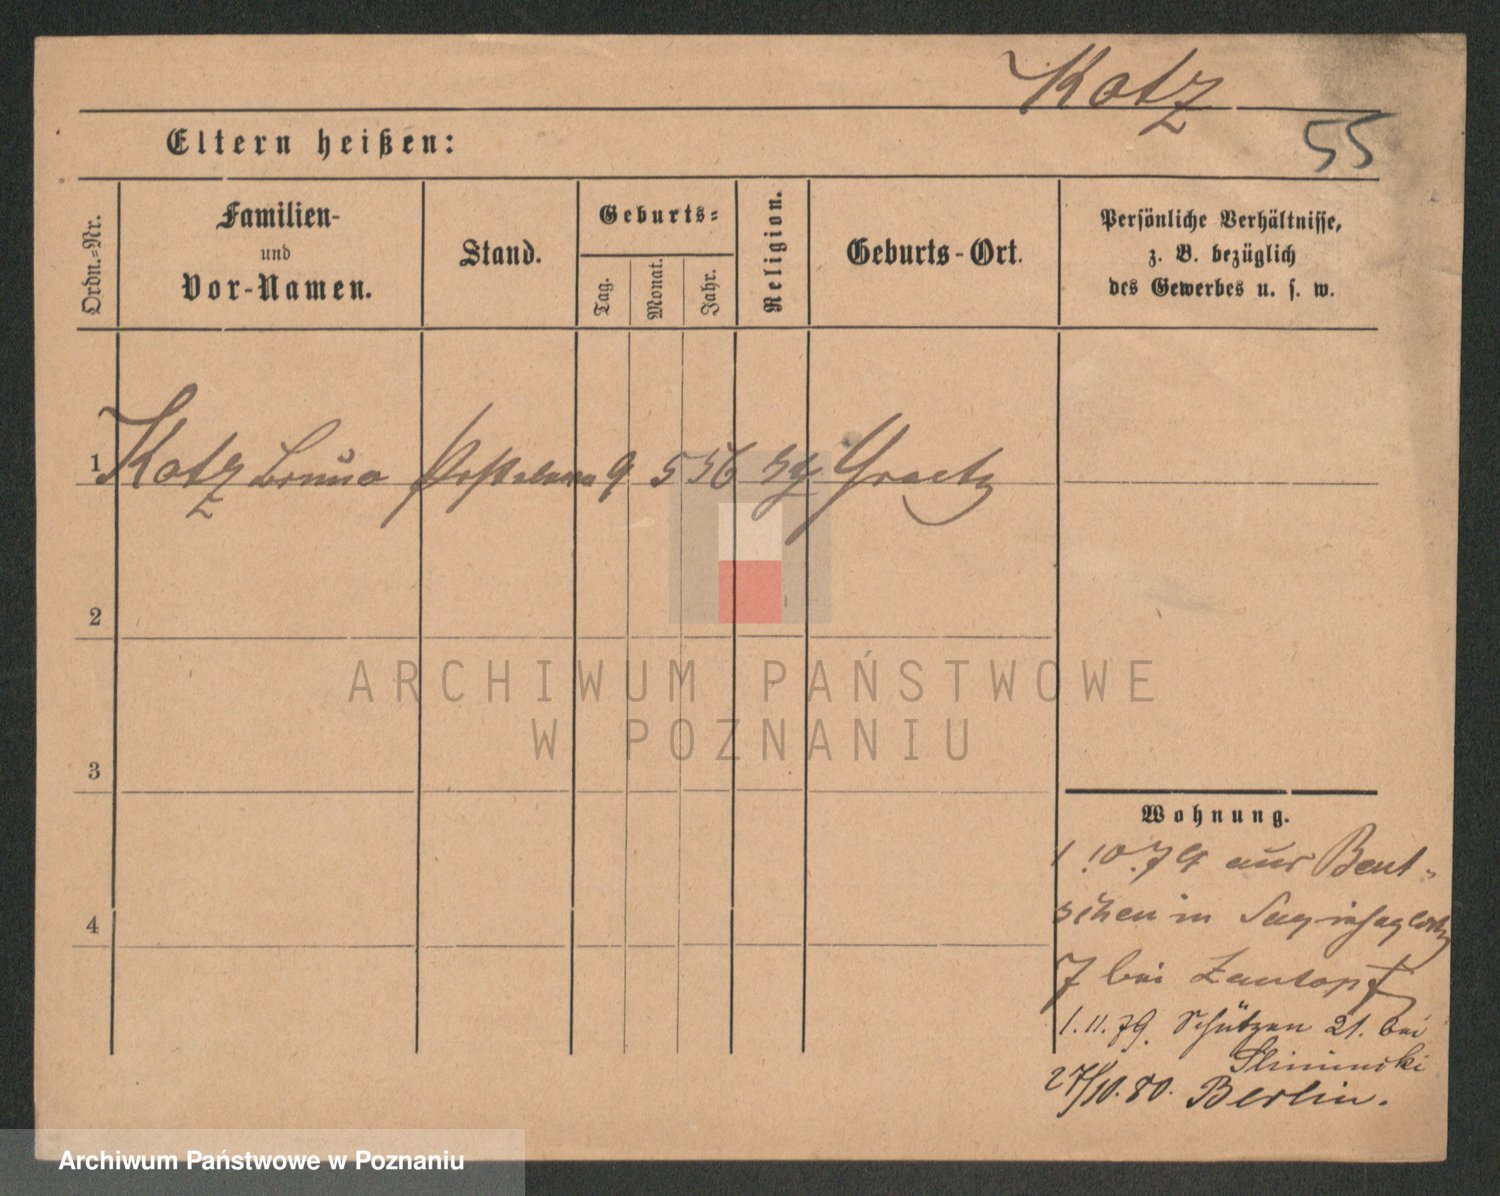 Kotz
55
Eltern heißen:
Ordn.=Nr.
Familien-
und
Vor-Namen.
Stand.
Geburts=
Tag.
Monat.
Jahr.
Religion.
Geburts-Ort.
Persönliche Verhältnisse,
z. B. bezüglich
des Gewerbes u. s. w.
1 Kotz Bruno 9 5 56 Graetz
2
3
4
ARCHIWUM PAŃSTWOWE
W POZNANIU
Wohnung.
1.10.79 aus Bent-
schen in
7 bei
1.11.79. Schützen 21. bei
27/10.80. Berlin.
Archiwum Państwowe w Poznaniu